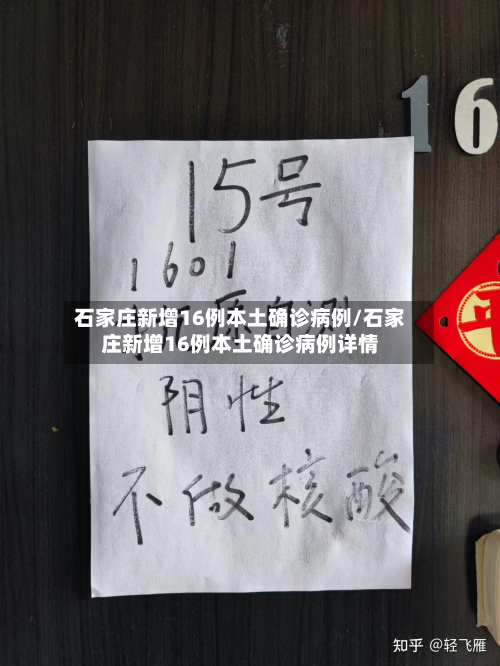 16
15号
1601
原自测
石家庄新增16例本土确诊病例/石家
庄新增16例本土确诊病例详情
阴性
不做核酸
知乎 @轻飞雁